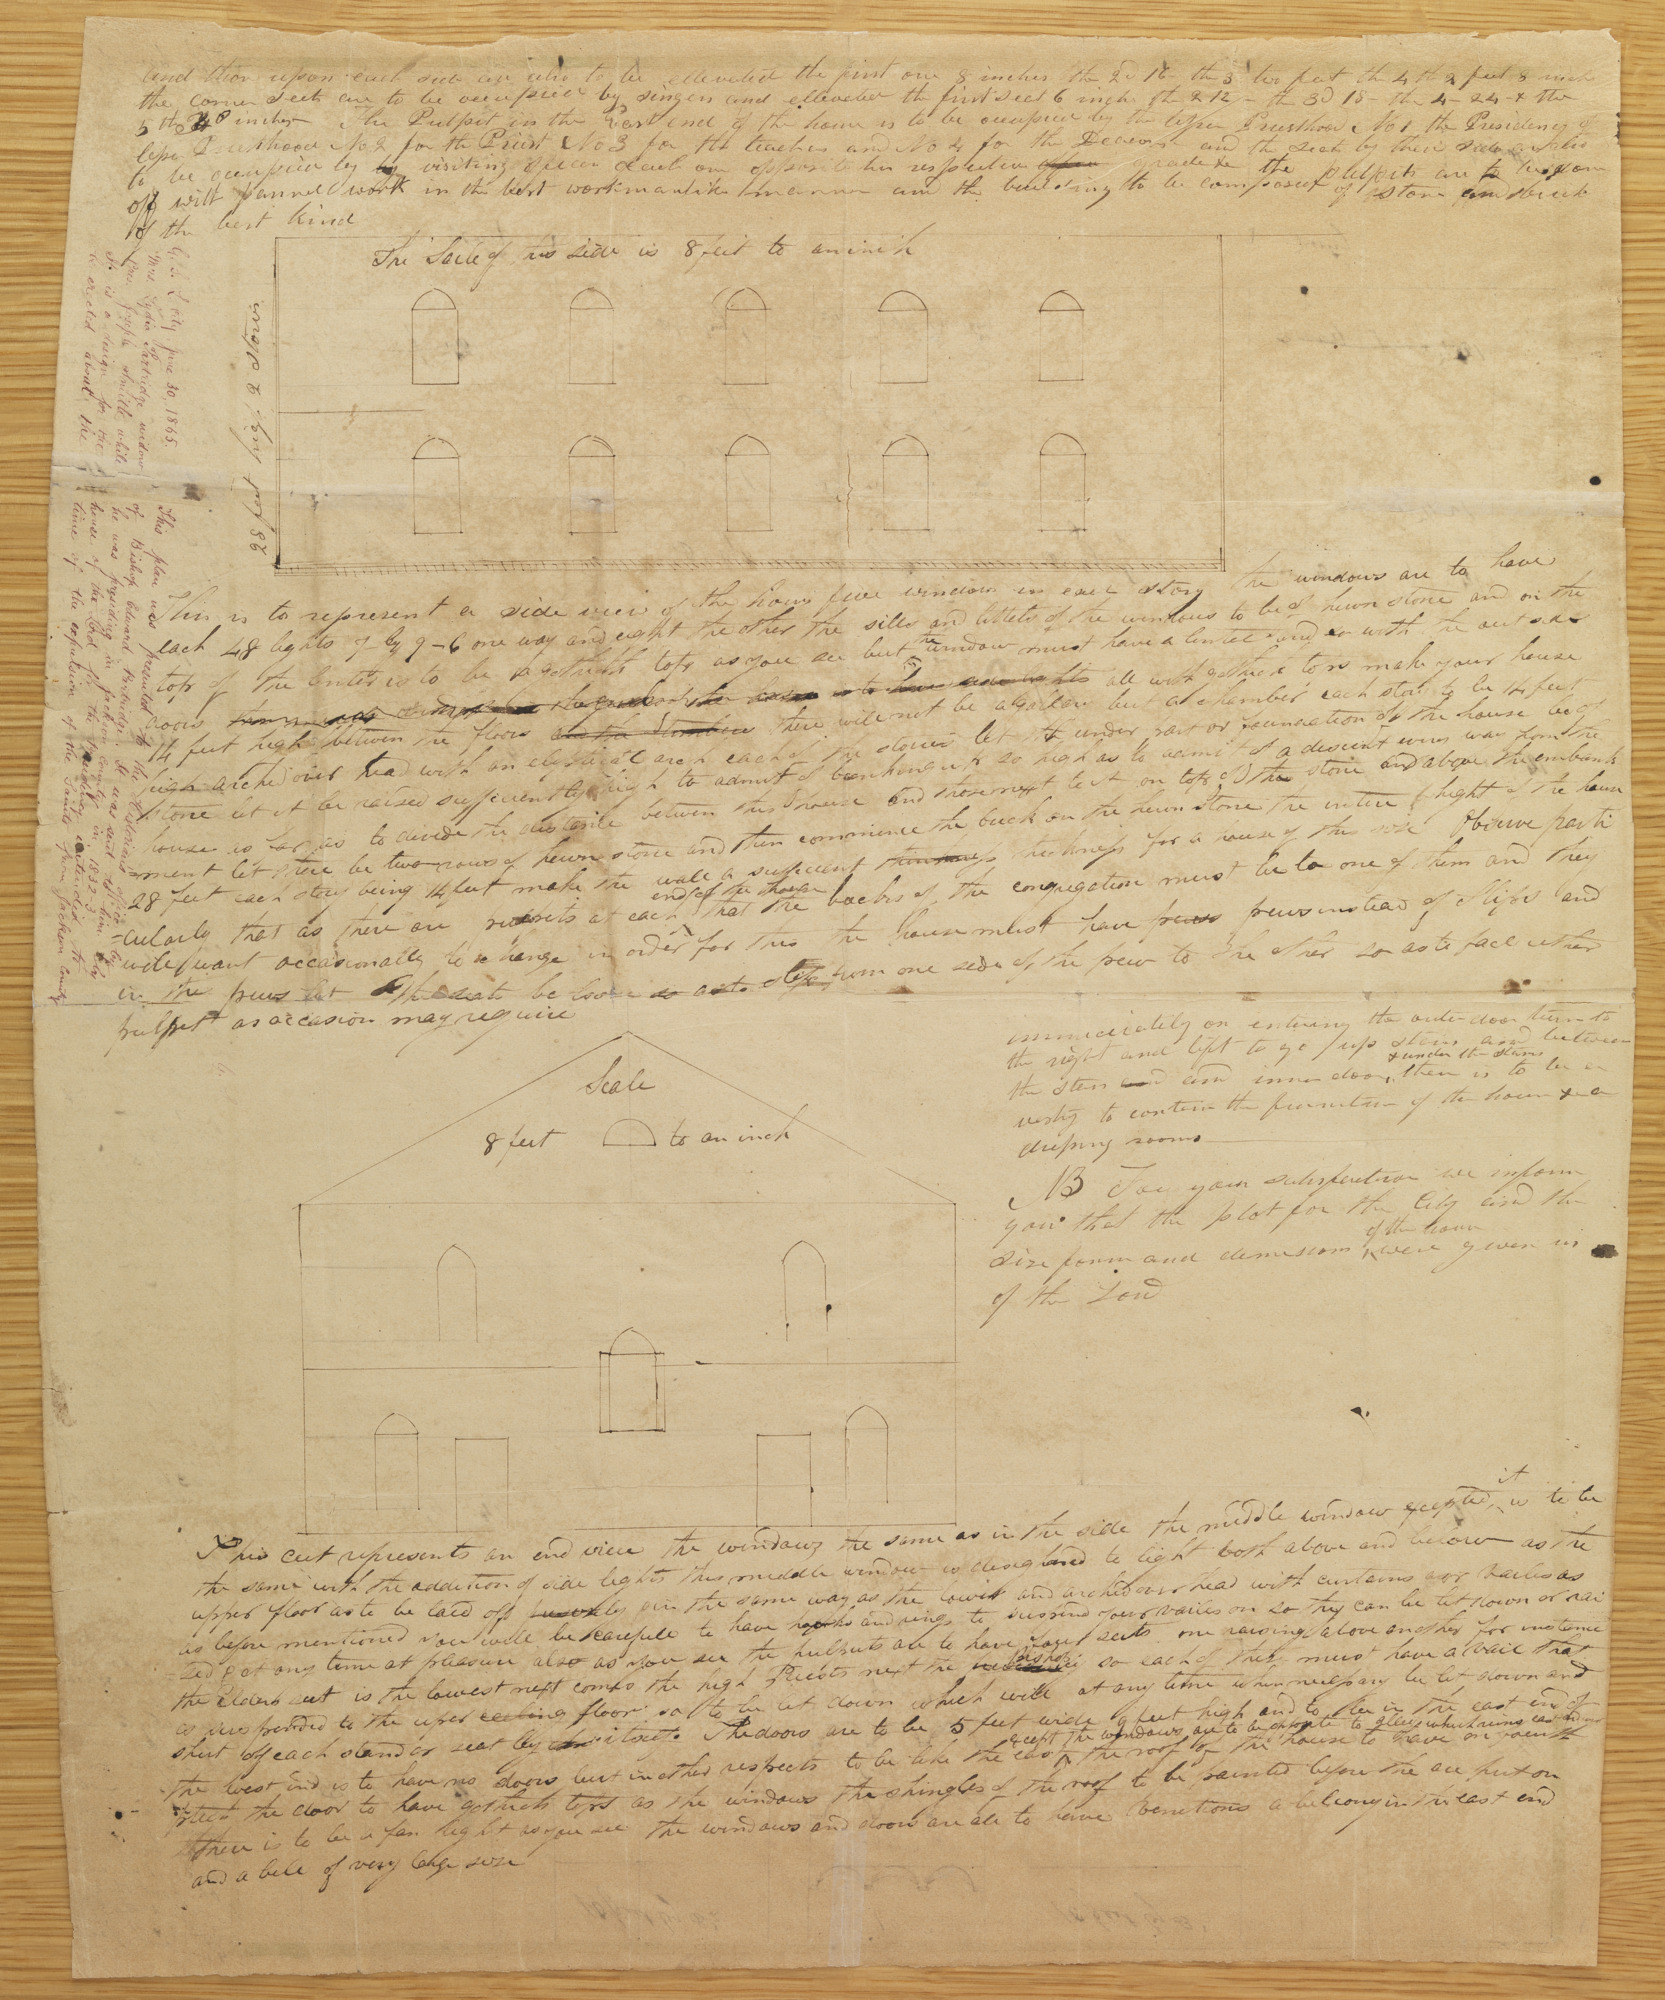 and those upon each side are also to be ellevated the first one 8 inches the 2d 16 the 3 two feet the 4th 2 feet 8 inches
the corner seets are to be occupied by singers and ellevated the first seet 6 inches the 2 12 - the 3d 18 - the 4 - 24 & the
5th inches The Pulpit in the East end of the house is to be occupied by the lesser Priesthood No 1 the Presidency of
lesser Priesthood No 2 for the Priest No 3 for the teachers and No 4 for the Deacons and the seets by their side are also
to be occupied by visiting officers each one opposite his respective grade &c the pulpits are to be
off with pannel work in the best workmanlike manner and the building to be composed of stone and brick
of the best kind
The Scale of this side is 8 feet to an inch
28 feet high & above
G. S. L. City June 30, 1865.
This plan was presented to the Historian's office by
Mrs. Lydia Partridge widow
of Bishop Edward Partridge. It was said to him by
Pres. Joseph Smith while
he was presiding in Jackson county in 1832-3
It is a design for the
house of the Lord for the
be erected about the
time of the expulsion of the Saints from Jackson county
This is to represent a side view of the house five windows in each story the windows are to have
each 48 lights of 7 by 9 - 6 one way and eight the other the sills and lintels of the windows to be of hewn stone and on the
top of the lintel is to be a gothick top as you see but the windows must have a lintel and so with the outside
doors all with gothick tops make your house
14 feet high between the floors there will not be a gallery but a chamber each story to be 14 feet
high arched over head with an eliptical arch each of the stories let the under part or foundation of the house be of
stone let it be raised sufficiently high to admit of banking up so high as to admit of a descent every way from the
house so far as to divide the distance between this house and those next to it on top of the stone and above the embank
ment let there be two rows of hewn stone and then commence the brick on the hewn stone the entire hight of the house
28 feet each story being 14 feet make the wall a sufficient thickness for a house of this size Observe parti
cularly that as there are pulpits at each end of the house that the backs of the congregation must be to one of them and they
will want occasionally to change in order for this the house must have pews instead of slips and
in the pews let the seats be loose slip from one side of the pew to the other so as to face either
pulpit as occasion may require
immediately on entering the outer door turn to
the right and left to go up stairs and between
the stairs and inner door & under the stairs there is to be a
vestry to contain the furniture of the house &c
dressing rooms
NB For your satisfaction we inform
you that the plot for the City and the
size form and demensions of the house were given us
of the Lord
Scale
8 feet to an inch
This cut represents an end view the windows the same as in the side the middle window excepted it is to be
the same with the addition of side lights this middle window is designed to light both above and below as the
upper floor is to be laid off in the same way as the lower and arched over head with curtains or vailes as
as before mentioned you will be carefull to have hooks and rings to suspend your vailes on so they can be let down or rai
sed up at any time at pleasure also as you see the pulpits are to have four seats one raising above another for instance
the Elders seet is the lowest next comes the high Priests next the Bishops so each of these must have a vail that
is suspended to the uper floor so to be let down which will at any time when necessary be let down and
shut off each stand or seat by itself. The doors are to be 5 feet wide 9 feet high and to be in the east end of
the west end is to have no doors but in other respects to be like the east except the windows are to be opposite to alleys which runs east and west the roof of the house to have one fourth
pitch the door to have gothick tops as the windows the shingles of the roof to be painted before the are put on
there is to be a fan light as you see the windows and doors are all to have venetions a belcony in the east end
and a bell of very large size